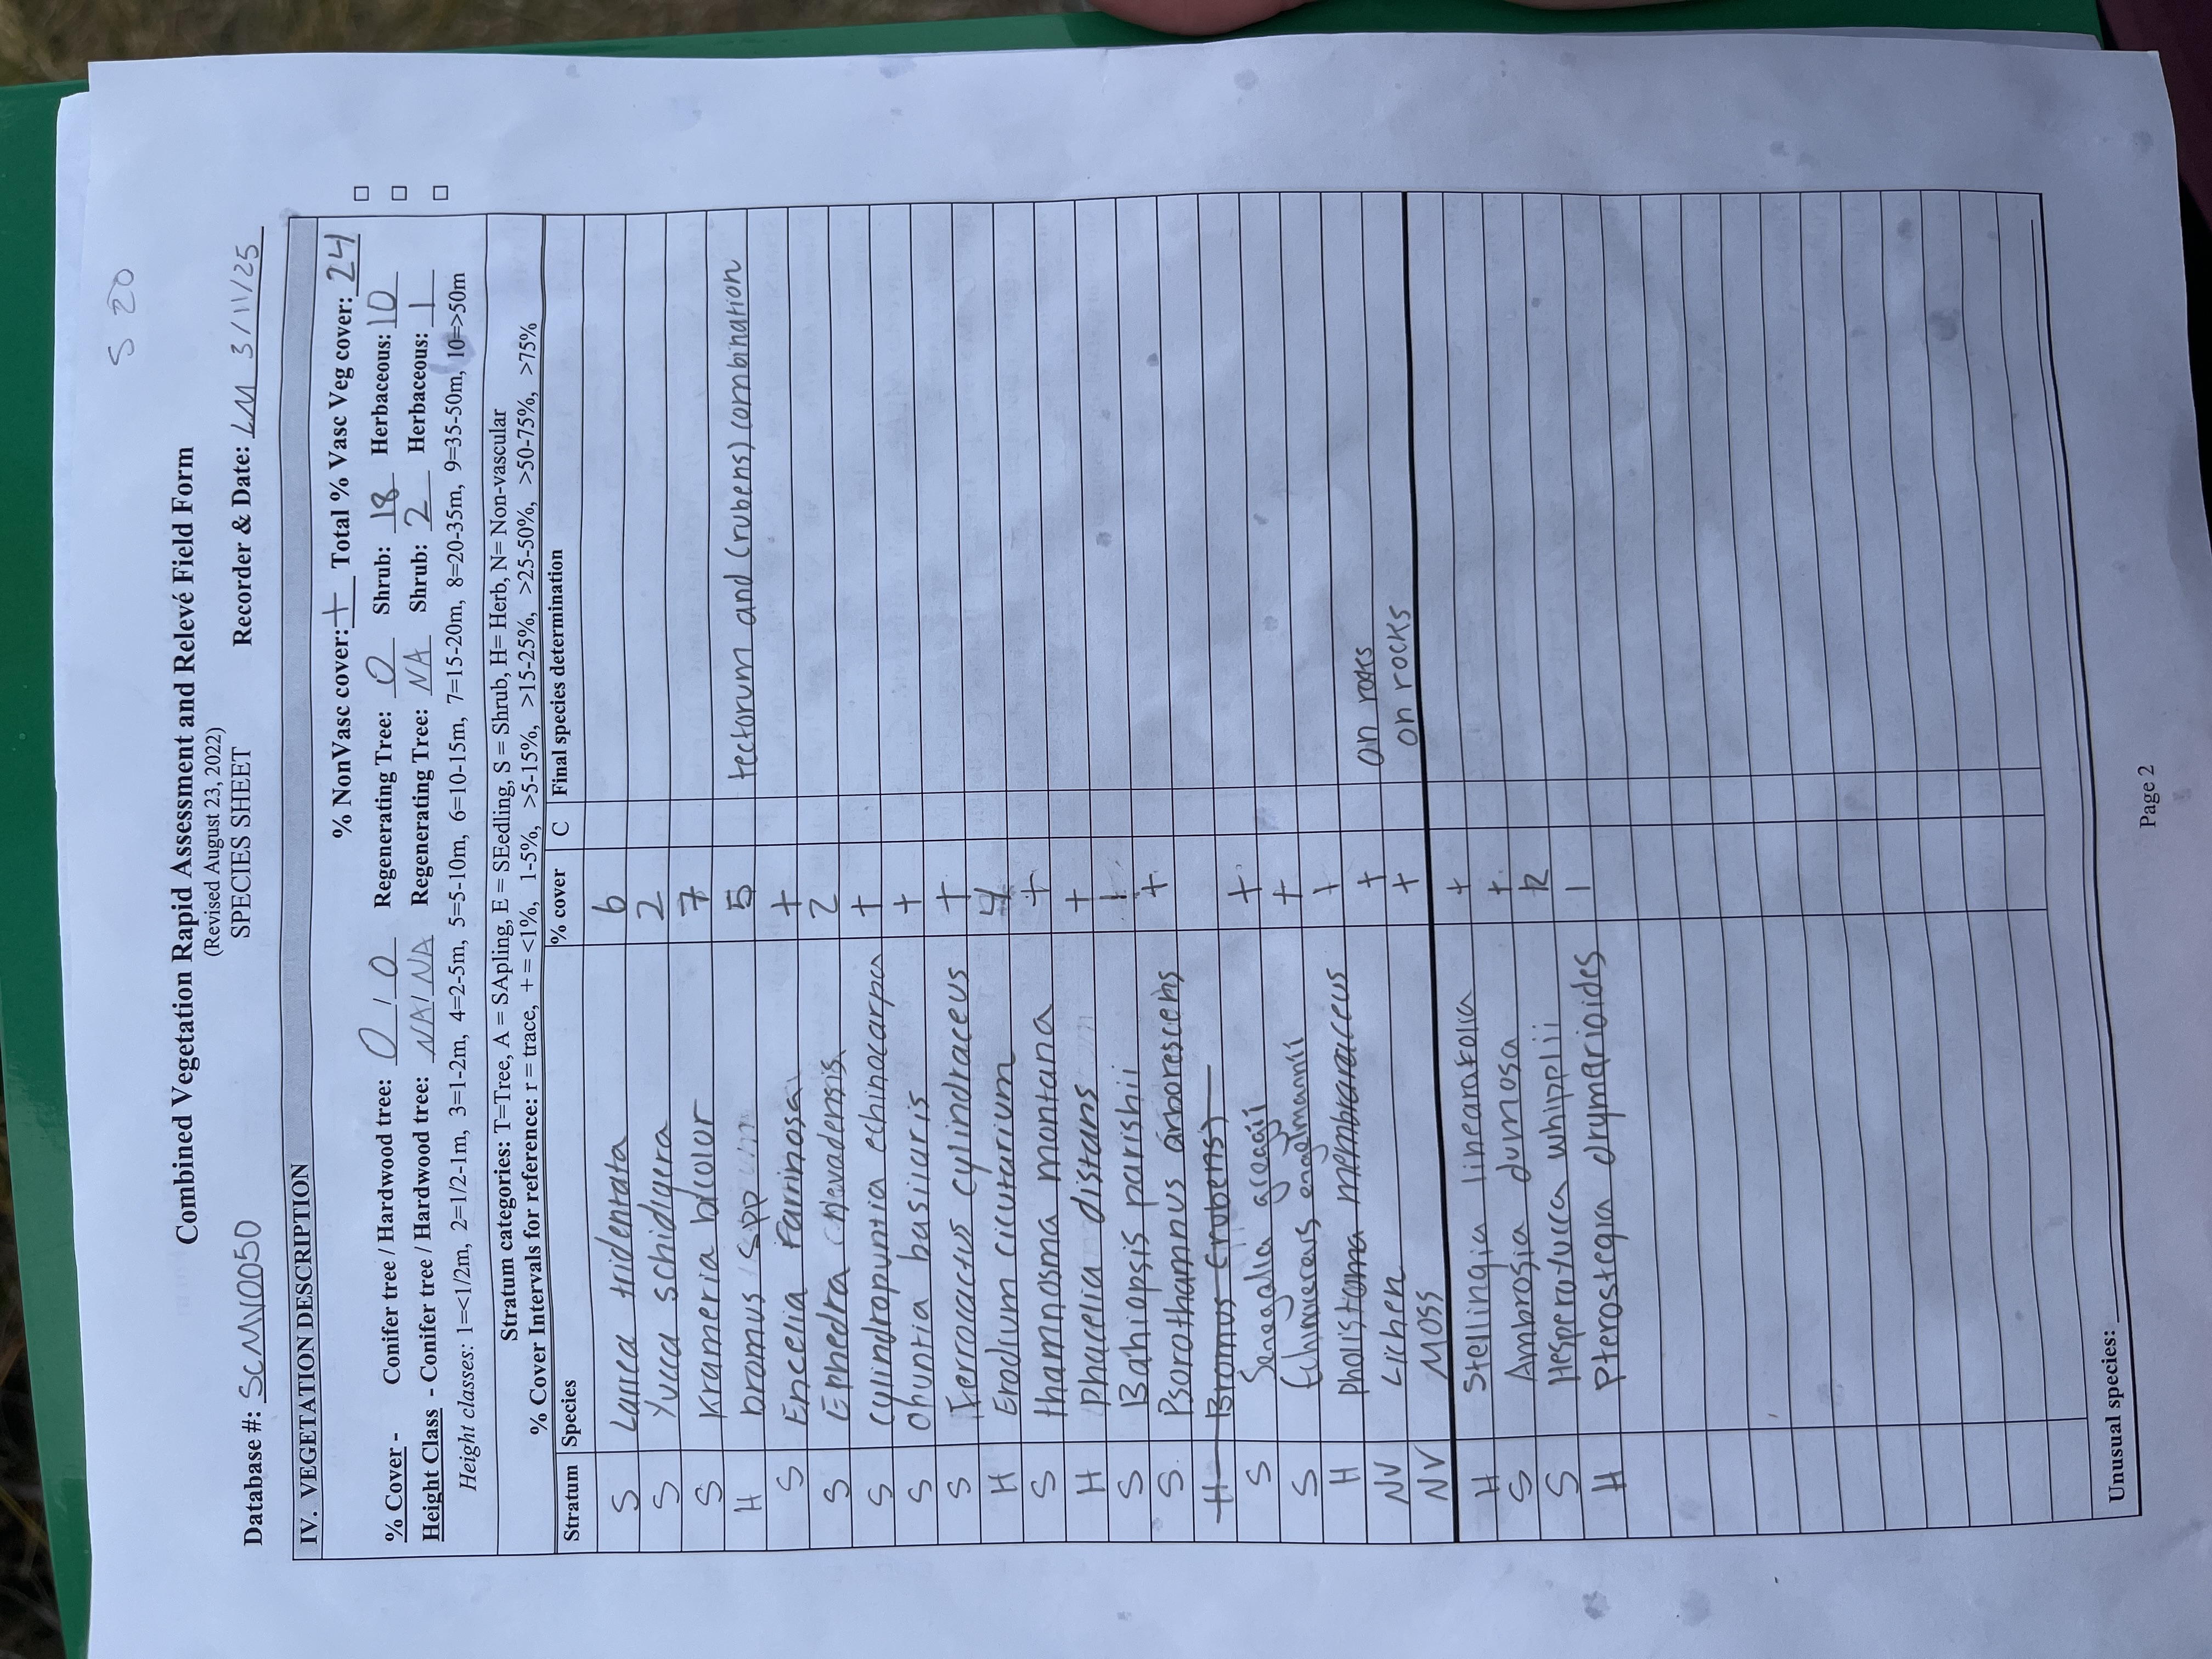 S 20
Combined Vegetation Rapid Assessment and Relevé Field Form
(Revised August 23, 2022)
SPECIES SHEET
Database #: SCMV0050 Recorder & Date: LM 3/11/25
IV. VEGETATION DESCRIPTION
% NonVasc cover: + Total % Vasc Veg cover: 24 □
% Cover - Conifer tree / Hardwood tree: 0 / 0 Regenerating Tree: 0 Shrub: 18 Herbaceous: 10 □
Height Class - Conifer tree / Hardwood tree: NA / NA Regenerating Tree: NA Shrub: 2 Herbaceous: 1 □
Height classes: 1=<1/2m, 2=1/2-1m, 3=1-2m, 4=2-5m, 5=5-10m, 6=10-15m, 7=15-20m, 8=20-35m, 9=35-50m, 10=>50m
Stratum categories: T=Tree, A = SApling, E = SEedling, S = Shrub, H= Herb, N= Non-vascular
% Cover Intervals for reference: r = trace, + = <1%, 1-5%, >5-15%, >15-25%, >25-50%, >50-75%, >75%
Stratum Species % cover C Final species determination
S Larrea tridentata 6
S Yucca schidigera 2
S Krameria bicolor 7
H bromus spp 5 tectorum and (rubens) combination
S Encelia farinosa +
S Ephedra nevadensis 2
S Cylindropuntia echinocarpa +
S Opuntia basilaris +
S Ferrocactus cylindraceus +
H Erodium cicutarium 4
S thamnosma montana +
H phacelia distans +
S Bahiopsis parishii 1
S Psorothamnus arborescens +
H Bromus (rubens)
S Senegalia greggii +
S Echinocereus engelmannii +
H Pholistoma membranaceus +
NV Lichen + on rocks
NV Moss + on rocks
H Stellingia linearafolia +
S Ambrosia dumosa +
S Hesperoyucca whipplii
H Pterostegia drymarioides 1
Unusual species:
Page 2